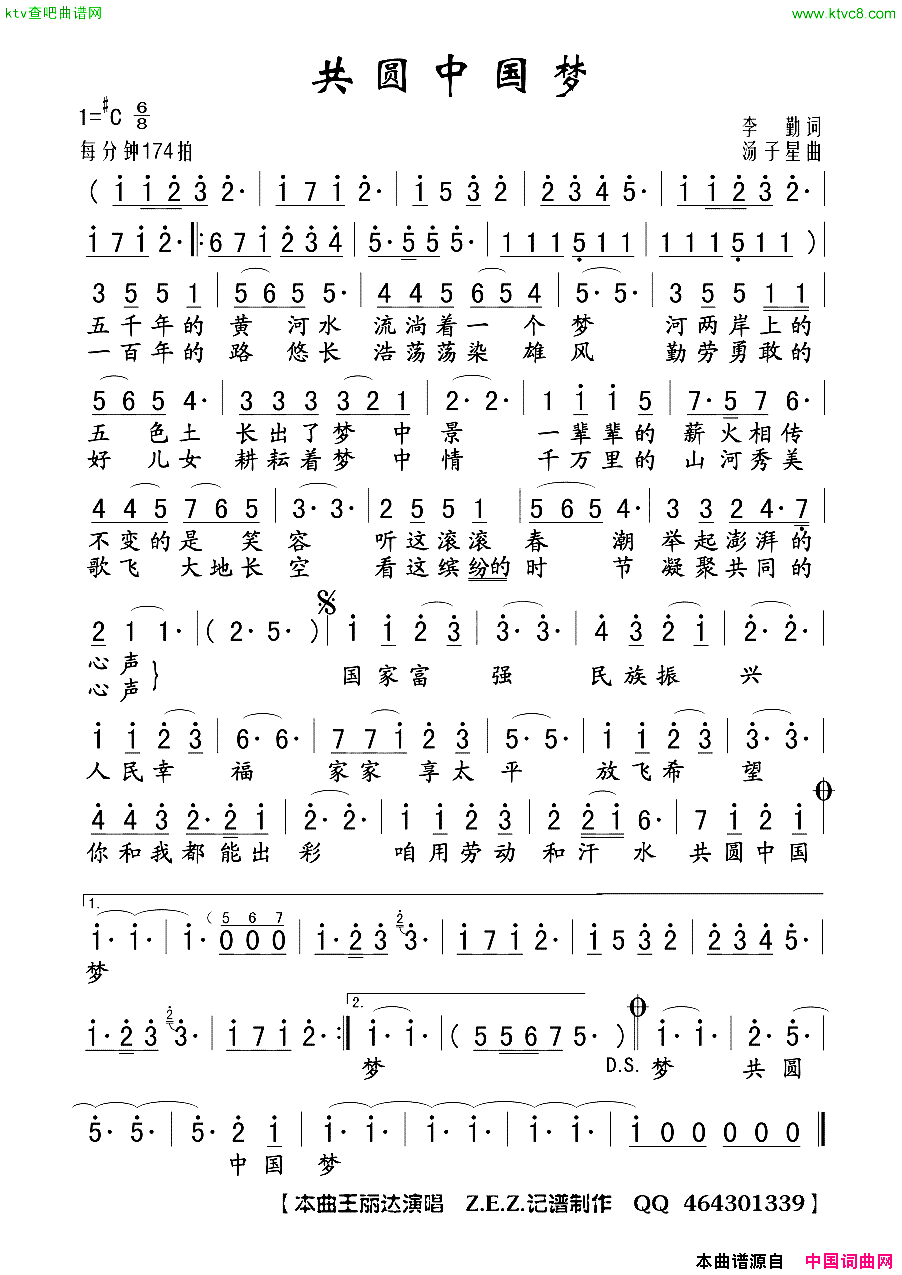 ktv查吧曲谱网 www.ktvc8.com
共圆中国梦
1=#C 6/8
李 勤词
每分钟174拍 汤子星曲
( i i 2 3 2· | i 7 i 2· | i 5 3 2 | 2 3 4 5· | i i 2 3 2· |
i 7 i 2· |: 6 7 i 2 3 4 | 5· 5 5 5· | 1 1 1 5 1 1 | 1 1 1 5 1 1 )
3 5 5 1 | 5 6 5 5· | 4 4 5 6 5 4 | 5· 5· | 3 5 5 1 1 |
五千年的 黄河水 流淌着一个梦 河两岸上的
一百年的 路悠长 浩荡荡染雄风 勤劳勇敢的
5 6 5 4· | 3 3 3 3 2 1 | 2· 2· | 1 i i 5 | 7· 5 7 6· |
五色土 长出了梦中景 一辈辈的 薪火相传
好儿女 耕耘着梦中情 千万里的 山河秀美
4 4 5 7 6 5 | 3· 3· | 2 5 5 1 | 5 6 5 5· | 3 3 2 4· 7 |
不变的是笑容 听这滚滚春潮 举起澎湃的
歌飞大地长空 看这缤纷的时节 凝聚共同的
2 1 1· | ( 2· 5· ) | i i 2 3 | 3· 3· | 4 3 2 i | 2· 2· |
心声 国家富强 民族振兴
心声
i i 2 3 | 6· 6· | 7 7 i 2 3 | 5· 5· | i i 2 3 | 3· 3· |
人民幸福 家家享太平 放飞希望
4 4 3 2· 2 i | 2· 2· | i i 2 3 | 2 2 i 6· | 7 i 2 i |
你和我都能出彩 咱用劳动和汗水 共圆中国
1.
( 5 6 7
i· i· | i· 0 0 0 | i· 2 3 2 3· | i 7 i 2· | i 5 3 2 | 2 3 4 5· |
梦
2.
i· 2 3 2 3· | i 7 i 2· :| i· i· | ( 5 5 6 7 5· ) | i· i· | 2· 5· |
梦 D.S. 梦 共圆
5· 5· | 5· 2 i | i· i· | i· i· | i· i· | i 0 0 0 0 0 |
中国梦
【本曲王丽达演唱 Z.E.Z.记谱制作 QQ 464301339】
本曲谱源自 中国词曲网